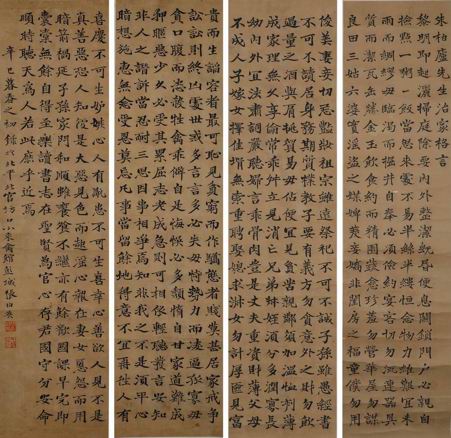 朱柏廬先生治家格言
黎明即起灑掃庭除要內外整潔既昏便息關鎖門戶必親自
檢點一粥一飯當思來處不易半絲半縷恒念物力維艱宜未
雨而綢繆毋臨渴而掘井自奉必須儉約宴客切勿流連器具
質而潔瓦缶勝金玉飲食約而精園蔬愈珍羞勿營華屋勿謀
良田三姑六婆實淫盜之媒婢美妾嬌非閨房之福童僕勿用
俊美妻妾切忌豔妝祖宗雖遠祭祀不可不誠子孫雖愚經書
不可不讀居身務期質樸教子要有義方勿貪意外之財勿飲
過量之酒與肩挑貿易毋佔便宜見貧苦親鄰須加溫恤刻薄
成家理無久享倫常乖舛立見消亡兄弟叔姪須分多潤寡長
幼內外宜法肅詞嚴聽婦言乖骨肉豈是丈夫重資財薄父母
不成人子嫁女擇佳婿無索重聘娶媳求淑女勿計厚匳見富
貴而生諂容者最可恥見貧窮而作驕態者賤莫甚居家戒爭
訟訟則終凶處世戒多言言多必失毋恃勢力而凌逼孤寡毋
貪口腹而恣殺牲禽乖僻自是悔誤必多頹惰自甘家道難成
狎暱惡少久必受其累屈志老成急則可相依輕聽發言安知
非人之譖訴當忍耐三思因事相爭焉知非我之不是須平心
暗想施惠無念受恩莫忘凡事當留餘地得意不宜再往人有
喜慶不可生妒嫉心人有禍患不可生喜幸心善欲人見不是
真善惡恐人知便是大惡見色而起淫心報在妻女匿怨而用
暗箭禍延子孫家門和順雖饔飧不繼亦有餘歡國課早完即
囊橐無餘自得至樂讀書志在聖賢為官心存君國守分安命
順時聽天為人若此庶乎近焉
辛巳暮春之初錄於北平北官坊口小來禽館彭城張伯英